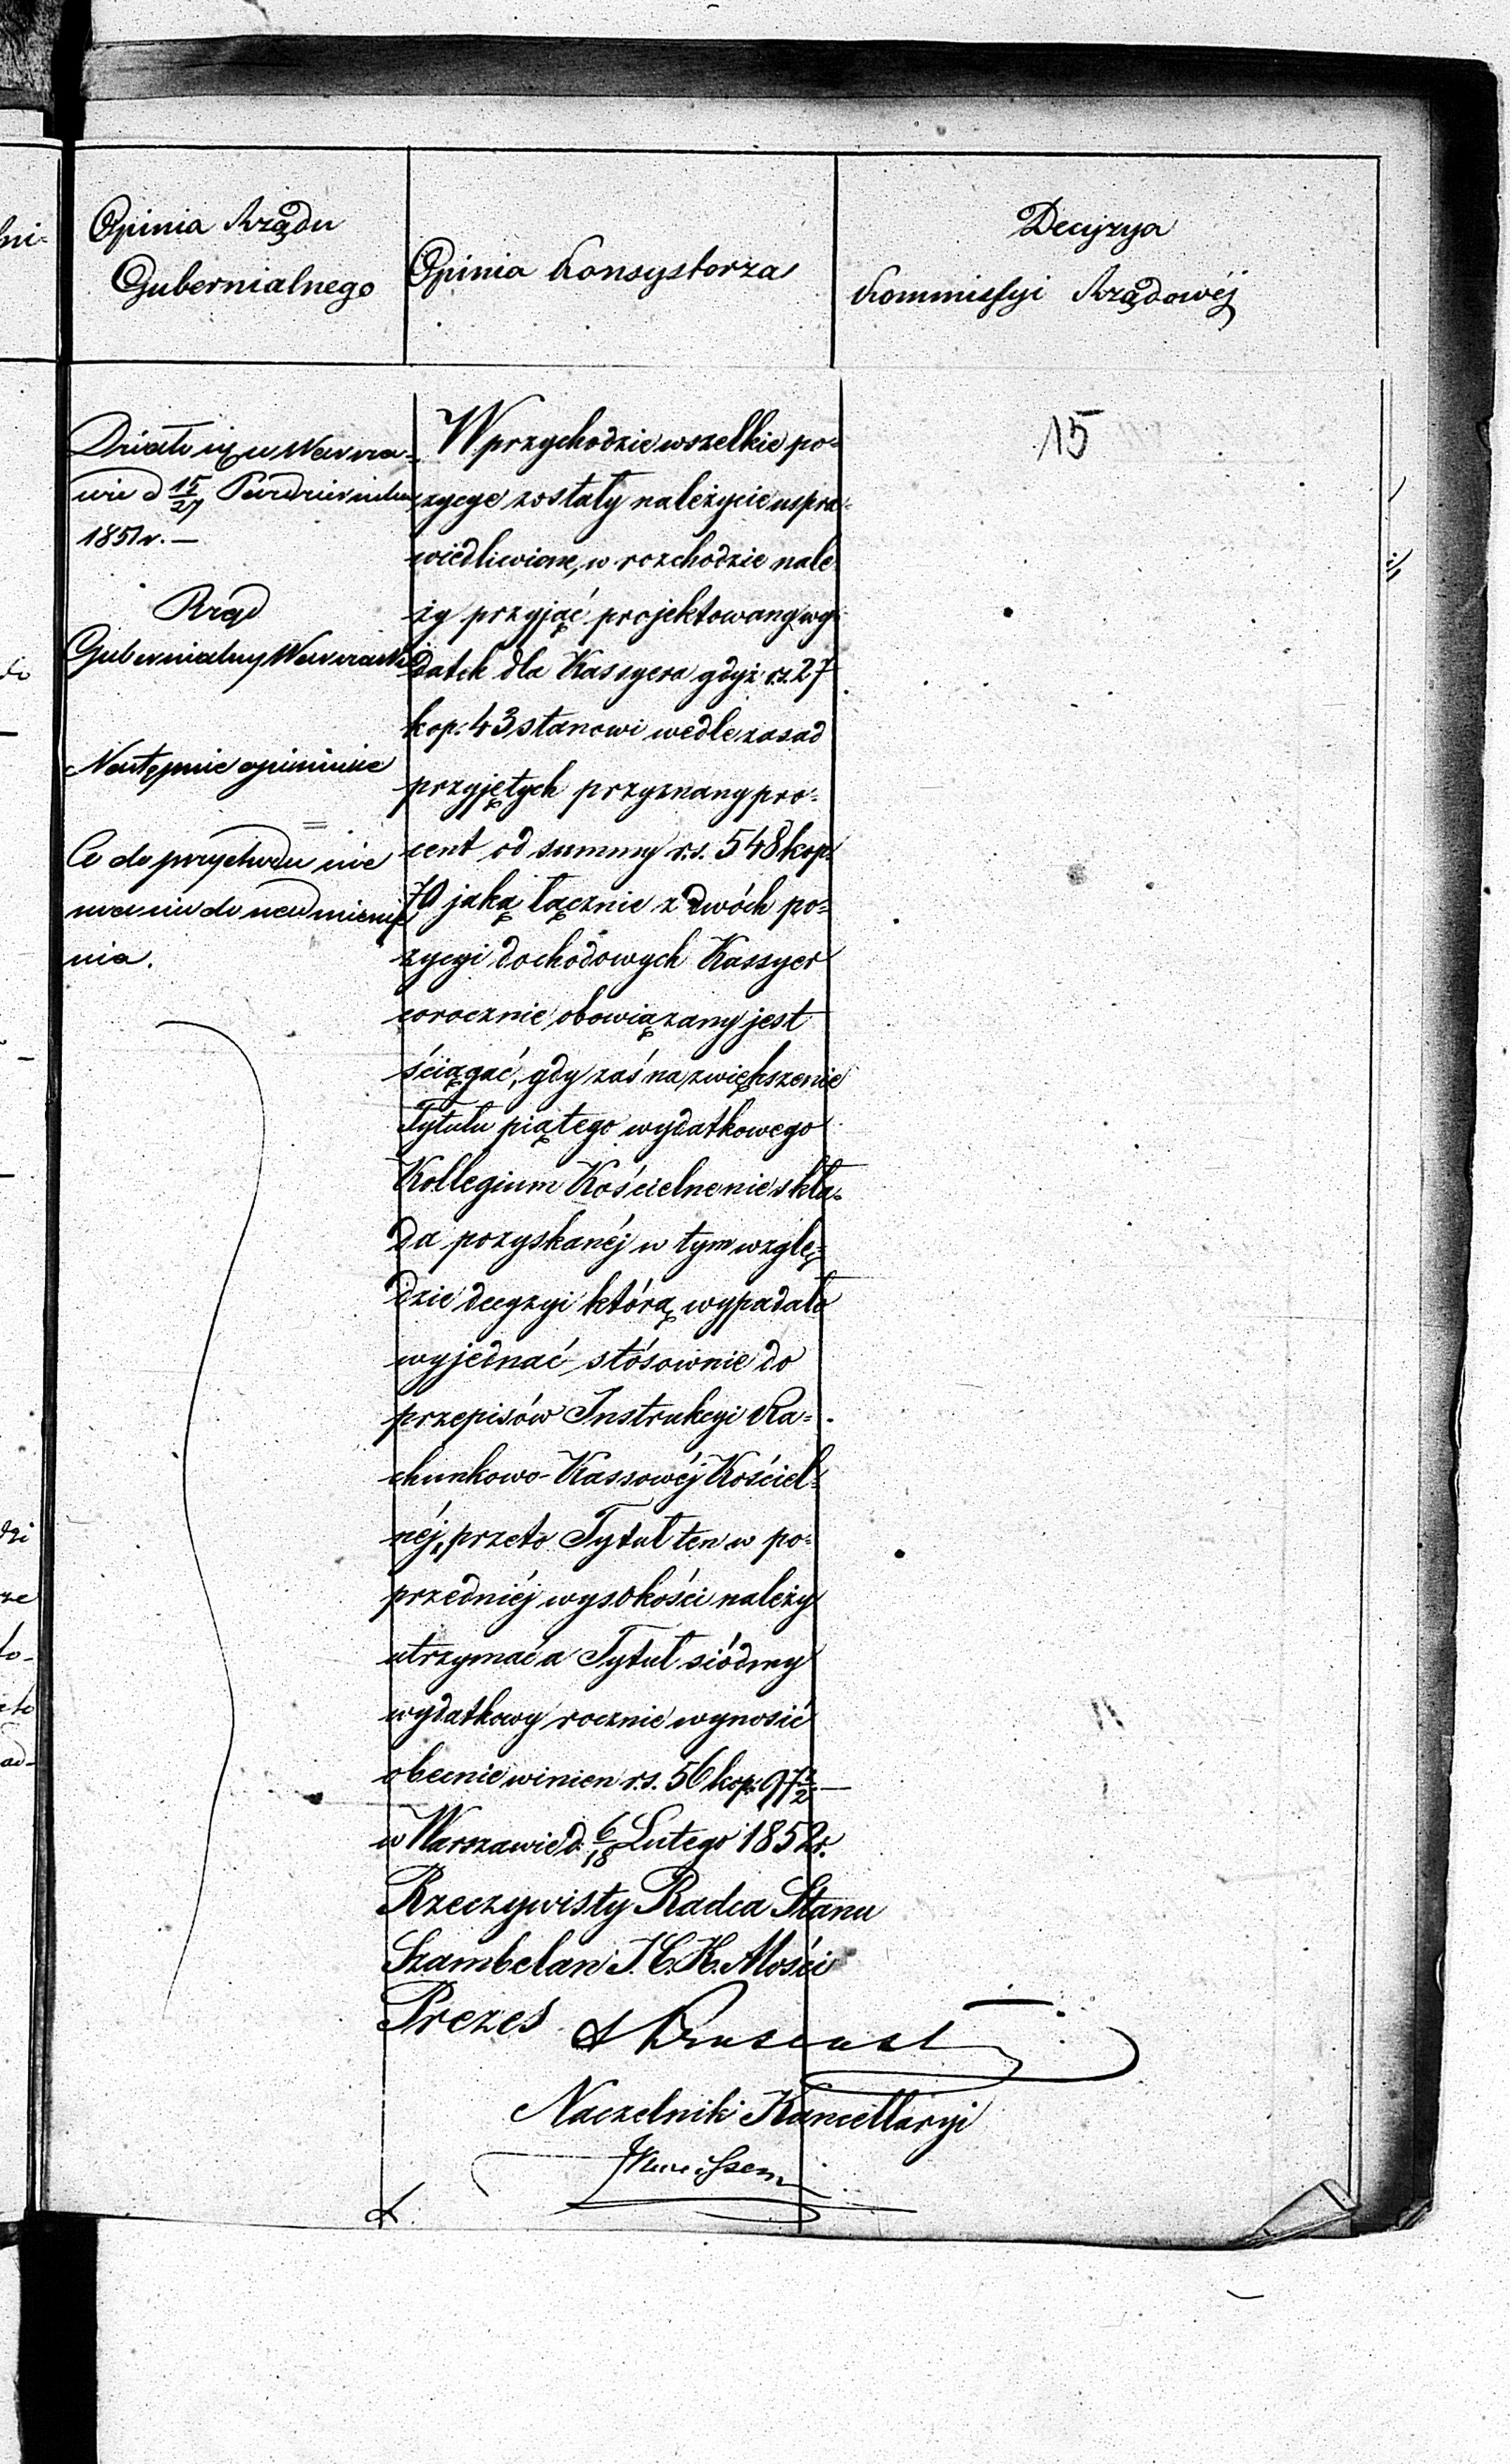 Opinia Rządu
Gubernialnego
Opinia Konsystorza
Decyzya
Kommissyi Rządowéj
15
Działo się w Warsza-
wie d 15/27 Października
1851 r. —
Rząd
Gubernialny Warszawski
Następnie opiniuje
Co do przychodu nie
ma nic do nadmienie
nia.
W przychodzie wszelkie po-
zycye zostały należycie uspra-
wiedliwione, w rozchodzie nale
ży przyjąć projektowany wy-
datek dla Kassyera gdyż r.s. 27
kop. 43 stanowi wedle zasad
przyjętych przyznany pro-
cent od summy r.s. 548 kop.
70 jaką łącznie z dwóch po-
zycyi dochodowych Kassyer
corocznie obowiązany jest
ściągać, gdy zaś na zwiększenie
Tytułu piątego wydatkowego
Kollegium Kościelne nie skła-
da pozyskanéj w tym wzglę-
dzie decyzyi którą wypadało
wyjednać stósownie do
przepisów Instrukcyi Ra-
chunkowo-Kassowéj Kościel-
néj, przeto Tytuł ten w po-
przedniéj wysokości należy
utrzymać a Tytuł siódmy
wydatkowy rocznie wynosić
obecnie winien r.s. 56 kop. 97 1/2 —
w Warszawie d. 6/18 Lutego 1852 r.
Rzeczywisty Radca Stanu
Szambelan J. C. K. Mości
Prezes
Naczelnik Kancellaryi